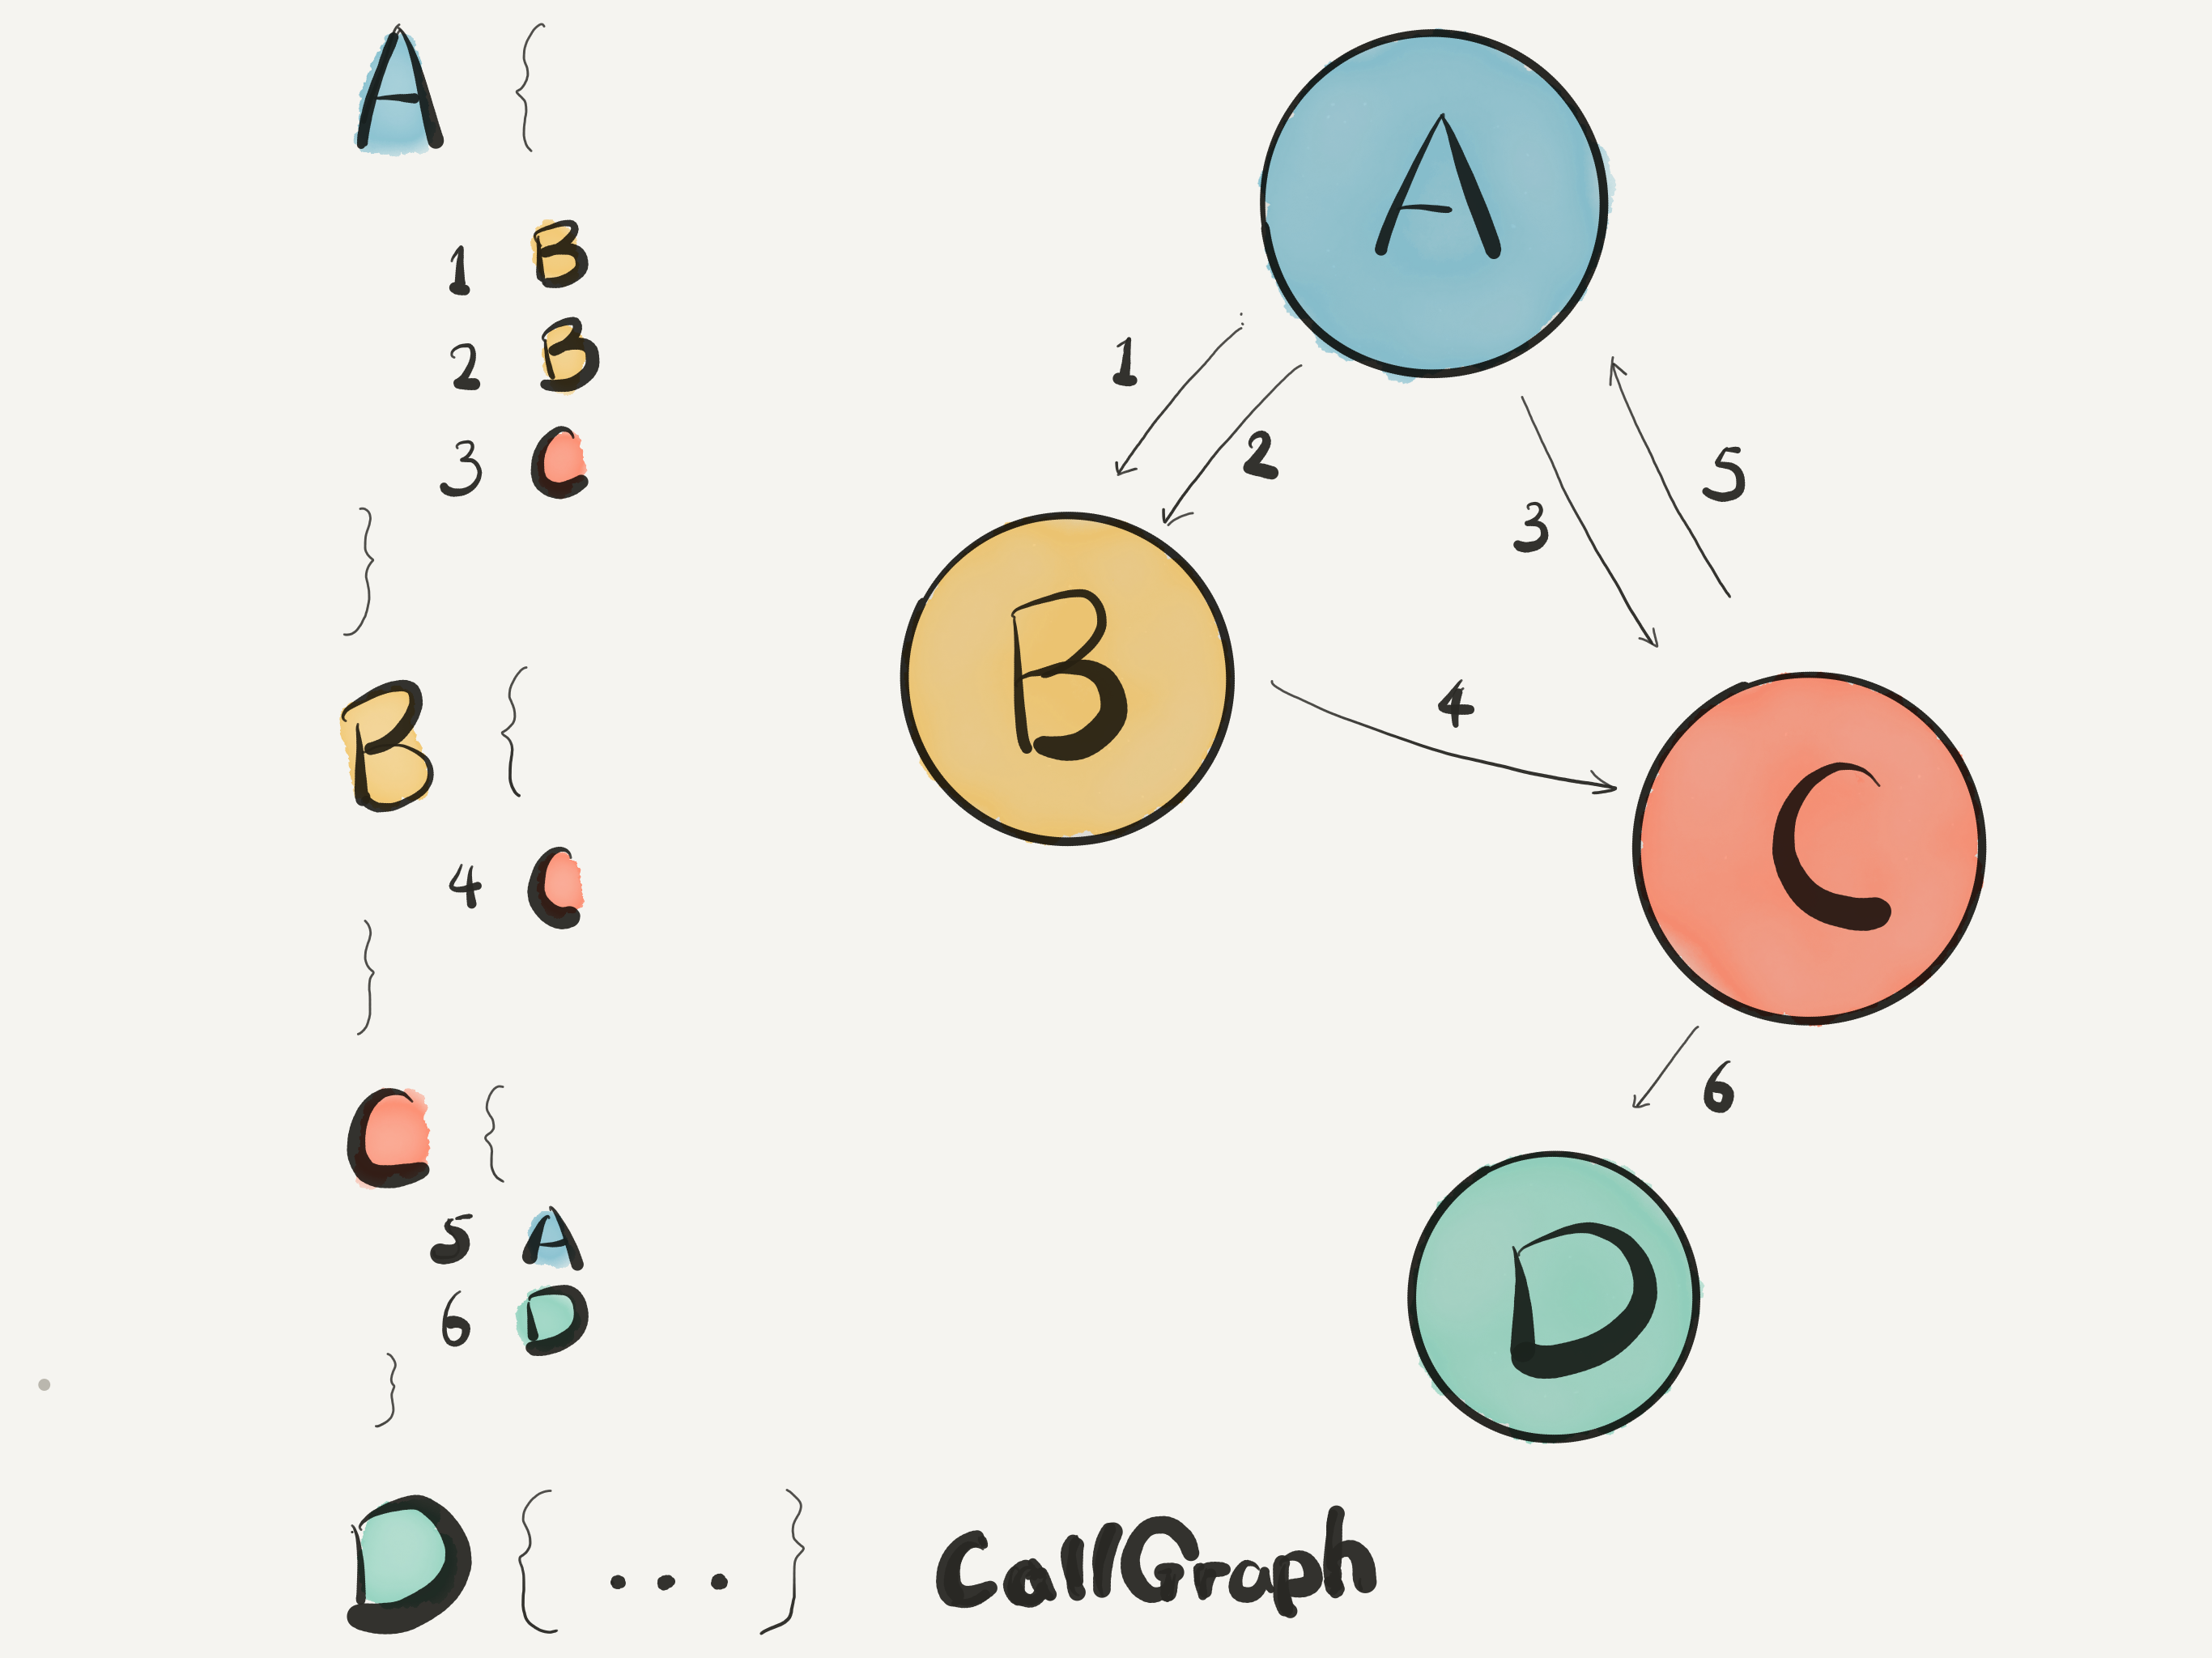 A {
1 B
2 B
3 C
}
B {
4 C
}
C {
5 A
6 D
}
D { ... }
A
1
2
3
5
B
4
C
6
D
CallGraph